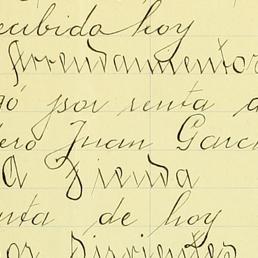 ecibida hoy
Arrendamientos
gó por renta d
dero Juan Garcí
A Tienda
enta de hoy
or Sirvientes